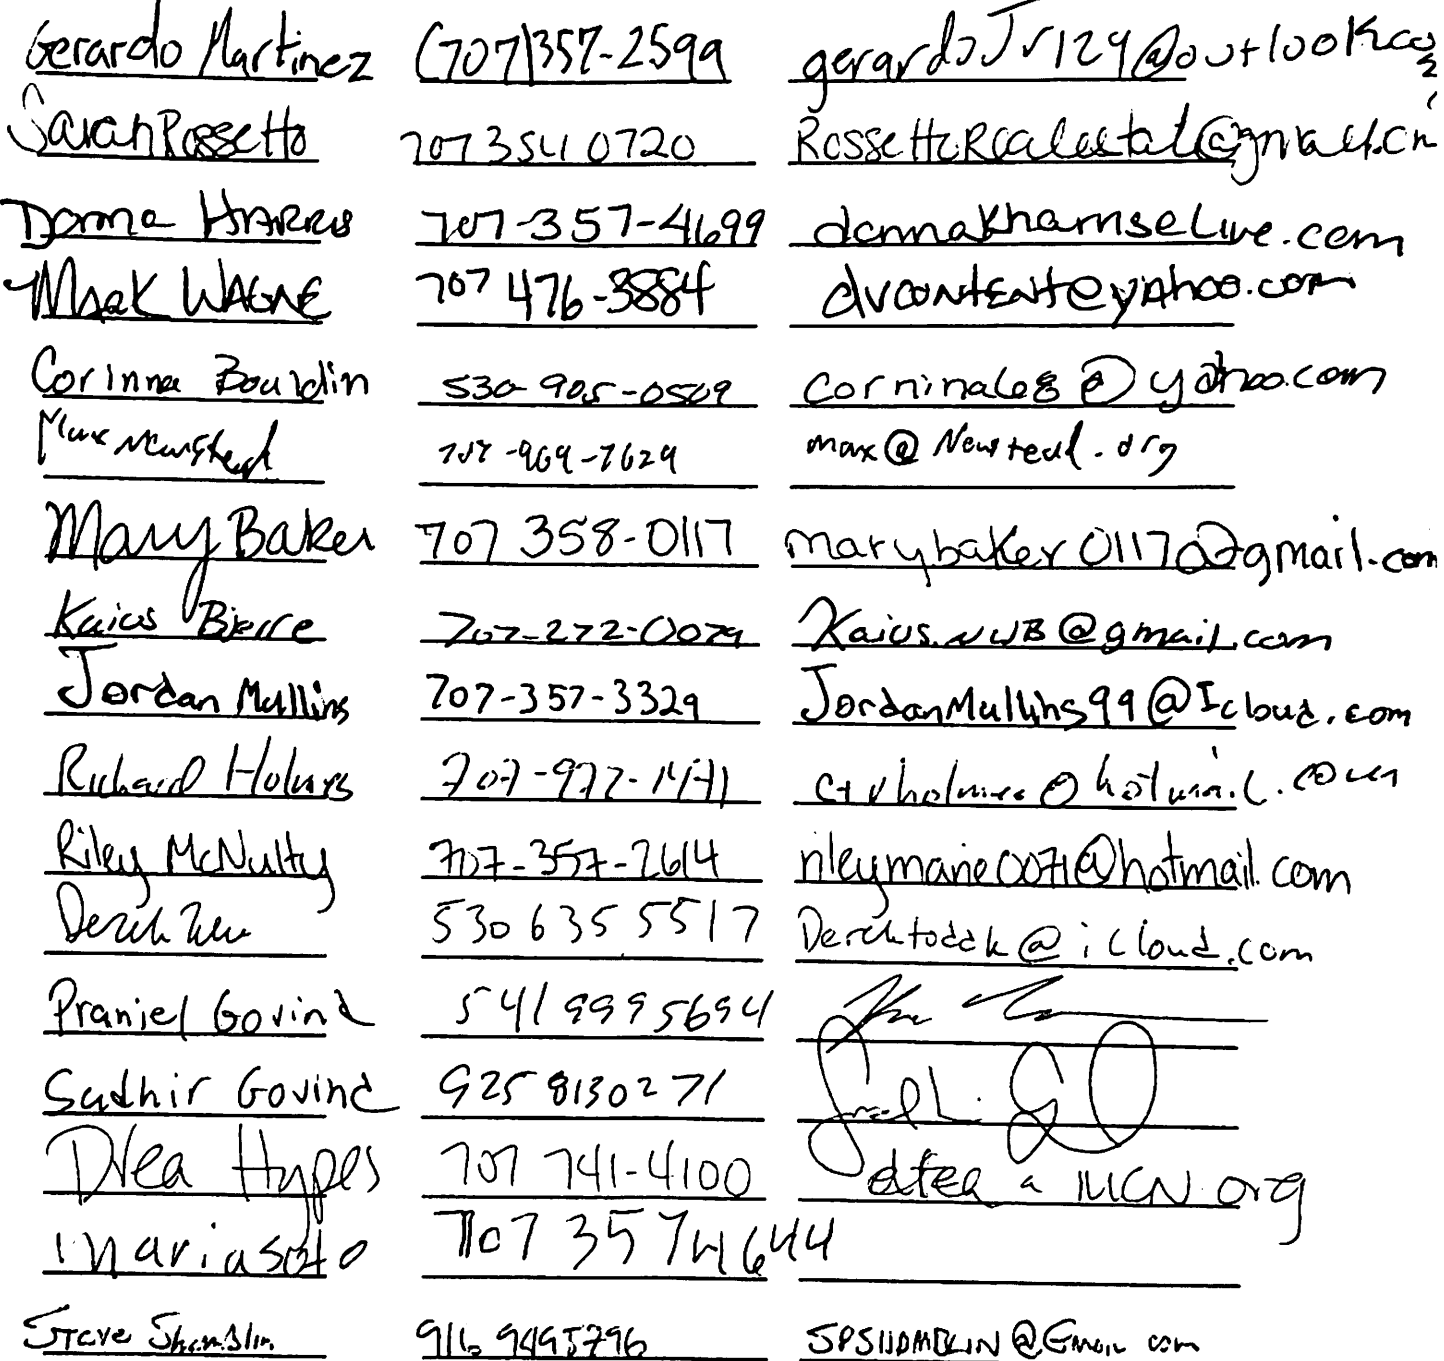 Gerardo Martinez (707)357-2599 gerardoJr124@outlook.com
Sarah Rossetto 707 354 0720 RossettoRealestate@gmail.cm
Donna Harris 707-357-4699 donnakharris@live.com
Mark WAGNE 707 476-3884 dvcontent@yahoo.com
Corinna Bourdin 530-905-0509 corninale8@yahoo.com
Max Newstead 707-969-7629 max@Newstead.org
Mary Baker 707 358-0117 marybaker0117@gmail.com
Kaius Bjerre 707-272-0079 Kaius.NWB@gmail.com
Jordan Mullins 707-357-3329 JordanMullins99@Icloud.com
Richard Holmes 707-972-1471 hotmail.com
Riley McNulty 707-357-2614 rileymarie0071@hotmail.com
Derek 530 635 5517 Derektoddk@icloud.com
Praniel Govind 541 999 5694
Sudhir Govind 925 8130271
Drea Hypes 707 741-4100 drea a MCN.org
maria soto 707 357 4644
Steve Shamblin 916 9495796 SPSHAMBLIN@Gmail com